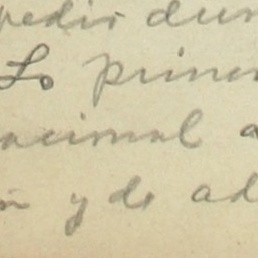 pedir dur
Lo primer
acional a
n y de ad